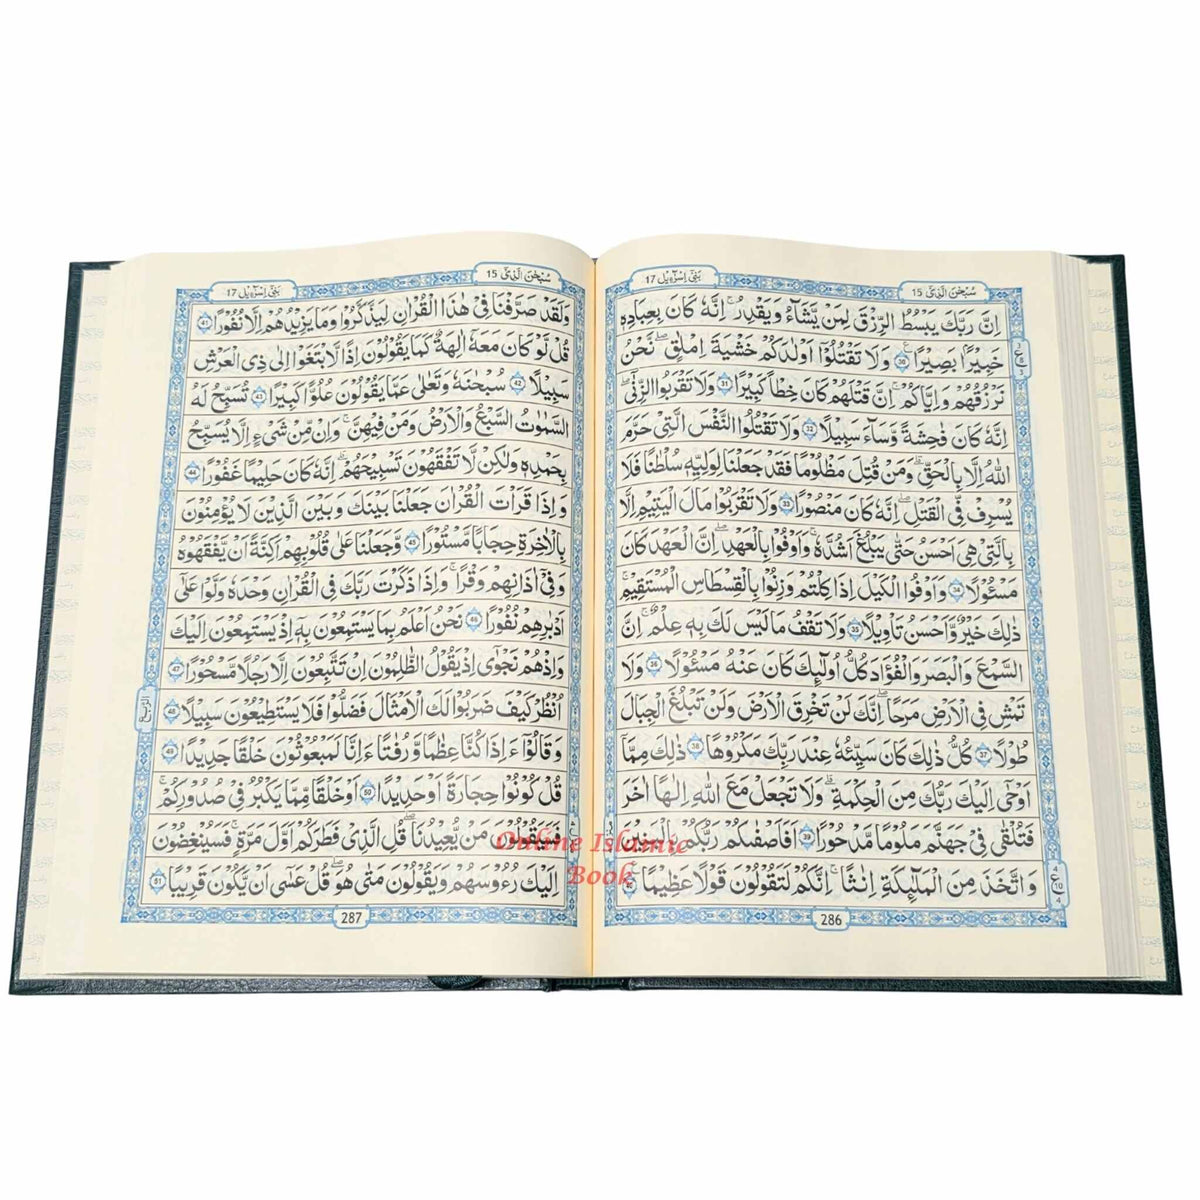 سُبْحٰنَ الَّذِیْۤ 15
بَنِیْۤ اِسْرَآءِیْل 17
اِنَّ رَبَّكَ یَبْسُطُ الرِّزْقَ لِمَنْ یَّشَآءُ وَیَقْدِرُ ؕ اِنَّهٗ كَانَ بِعِبَادِهٖ
خَبِیْرًۢا بَصِیْرًا 30 وَلَا تَقْتُلُوْۤا اَوْلَادَكُمْ خَشْیَةَ اِمْلَاقٍ ؕ نَحْنُ
نَرْزُقُهُمْ وَاِیَّاكُمْ ؕ اِنَّ قَتْلَهُمْ كَانَ خِطْاً كَبِیْرًا 31 وَلَا تَقْرَبُوا الزِّنٰۤی
اِنَّهٗ كَانَ فَاحِشَةً ؕ وَسَآءَ سَبِیْلًا 32 وَلَا تَقْتُلُوا النَّفْسَ الَّتِیْ حَرَّمَ
اللّٰهُ اِلَّا بِالْحَقِّ ؕ وَمَنْ قُتِلَ مَظْلُوْمًا فَقَدْ جَعَلْنَا لِوَلِیِّهٖ سُلْطٰنًا فَلَا
یُسْرِفْ فِّی الْقَتْلِ ؕ اِنَّهٗ كَانَ مَنْصُوْرًا 33 وَلَا تَقْرَبُوْا مَالَ الْیَتِیْمِ اِلَّا
بِالَّتِیْ هِیَ اَحْسَنُ حَتّٰی یَبْلُغَ اَشُدَّهٗ ۪ وَاَوْفُوْا بِالْعَهْدِ ۚ اِنَّ الْعَهْدَ كَانَ
مَسْـُٔوْلًا 34 وَاَوْفُوا الْكَیْلَ اِذَا كِلْتُمْ وَزِنُوْا بِالْقِسْطَاسِ الْمُسْتَقِیْمِ ؕ
ذٰلِكَ خَیْرٌ وَّاَحْسَنُ تَاْوِیْلًا 35 وَلَا تَقْفُ مَا لَیْسَ لَكَ بِهٖ عِلْمٌ ؕ اِنَّ
السَّمْعَ وَالْبَصَرَ وَالْفُؤَادَ كُلُّ اُولٰٓئِكَ كَانَ عَنْهُ مَسْـُٔوْلًا 36 وَلَا
تَمْشِ فِی الْاَرْضِ مَرَحًا ۚ اِنَّكَ لَنْ تَخْرِقَ الْاَرْضَ وَلَنْ تَبْلُغَ الْجِبَالَ
طُوْلًا 37 كُلُّ ذٰلِكَ كَانَ سَیِّئُهٗ عِنْدَ رَبِّكَ مَكْرُوْهًا 38 ذٰلِكَ مِمَّاۤ
اَوْحٰۤی اِلَیْكَ رَبُّكَ مِنَ الْحِكْمَةِ ؕ وَلَا تَجْعَلْ مَعَ اللّٰهِ اِلٰهًا اٰخَرَ
فَتُلْقٰی فِیْ جَهَنَّمَ مَلُوْمًا مَّدْحُوْرًا 39 اَفَاَصْفٰىكُمْ رَبُّكُمْ بِالْبَنِیْنَ
وَاتَّخَذَ مِنَ الْمَلٰٓئِكَةِ اِنَاثًا ؕ اِنَّكُمْ لَتَقُوْلُوْنَ قَوْلًا عَظِیْمًا
286
سُبْحٰنَ الَّذِیْۤ 15
بَنِیْۤ اِسْرَآءِیْل 17
وَلَقَدْ صَرَّفْنَا فِیْ هٰذَا الْقُرْاٰنِ لِیَذَّكَّرُوْا وَمَا یَزِیْدُهُمْ اِلَّا نُفُوْرًا 41
قُلْ لَّوْ كَانَ مَعَهٗۤ اٰلِهَةٌ كَمَا یَقُوْلُوْنَ اِذًا لَّابْتَغَوْا اِلٰی ذِی الْعَرْشِ
سَبِیْلًا 42 سُبْحٰنَهٗ وَتَعٰلٰی عَمَّا یَقُوْلُوْنَ عُلُوًّا كَبِیْرًا 43 تُسَبِّحُ لَهُ
السَّمٰوٰتُ السَّبْعُ وَالْاَرْضُ وَمَنْ فِیْهِنَّ ؕ وَاِنْ مِّنْ شَیْءٍ اِلَّا یُسَبِّحُ
بِحَمْدِهٖ وَلٰكِنْ لَّا تَفْقَهُوْنَ تَسْبِیْحَهُمْ ؕ اِنَّهٗ كَانَ حَلِیْمًا غَفُوْرًا 44
وَاِذَا قَرَاْتَ الْقُرْاٰنَ جَعَلْنَا بَیْنَكَ وَبَیْنَ الَّذِیْنَ لَا یُؤْمِنُوْنَ
بِالْاٰخِرَةِ حِجَابًا مَّسْتُوْرًا 45 وَّجَعَلْنَا عَلٰی قُلُوْبِهِمْ اَكِنَّةً اَنْ یَّفْقَهُوْهُ
وَفِیْۤ اٰذَانِهِمْ وَقْرًا ؕ وَاِذَا ذَكَرْتَ رَبَّكَ فِی الْقُرْاٰنِ وَحْدَهٗ وَلَّوْا عَلٰۤی
اَدْبَارِهِمْ نُفُوْرًا 46 نَحْنُ اَعْلَمُ بِمَا یَسْتَمِعُوْنَ بِهٖۤ اِذْ یَسْتَمِعُوْنَ اِلَیْكَ
وَاِذْ هُمْ نَجْوٰۤی اِذْ یَقُوْلُ الظّٰلِمُوْنَ اِنْ تَتَّبِعُوْنَ اِلَّا رَجُلًا مَّسْحُوْرًا 47
اُنْظُرْ كَیْفَ ضَرَبُوْا لَكَ الْاَمْثَالَ فَضَلُّوْا فَلَا یَسْتَطِیْعُوْنَ سَبِیْلًا 48
وَقَالُوْۤا ءَاِذَا كُنَّا عِظَامًا وَّرُفَاتًا ءَاِنَّا لَمَبْعُوْثُوْنَ خَلْقًا جَدِیْدًا 49
قُلْ كُوْنُوْا حِجَارَةً اَوْ حَدِیْدًا 50 اَوْ خَلْقًا مِّمَّا یَكْبُرُ فِیْ صُدُوْرِكُمْ ۚ
فَسَیَقُوْلُوْنَ مَنْ یُّعِیْدُنَا ؕ قُلِ الَّذِیْ فَطَرَكُمْ اَوَّلَ مَرَّةٍ ۚ فَسَیُنْغِضُوْنَ
اِلَیْكَ رُءُوْسَهُمْ وَیَقُوْلُوْنَ مَتٰی هُوَ ؕ قُلْ عَسٰۤی اَنْ یَّكُوْنَ قَرِیْبًا 51
287
الربع
Online Islamic
Book